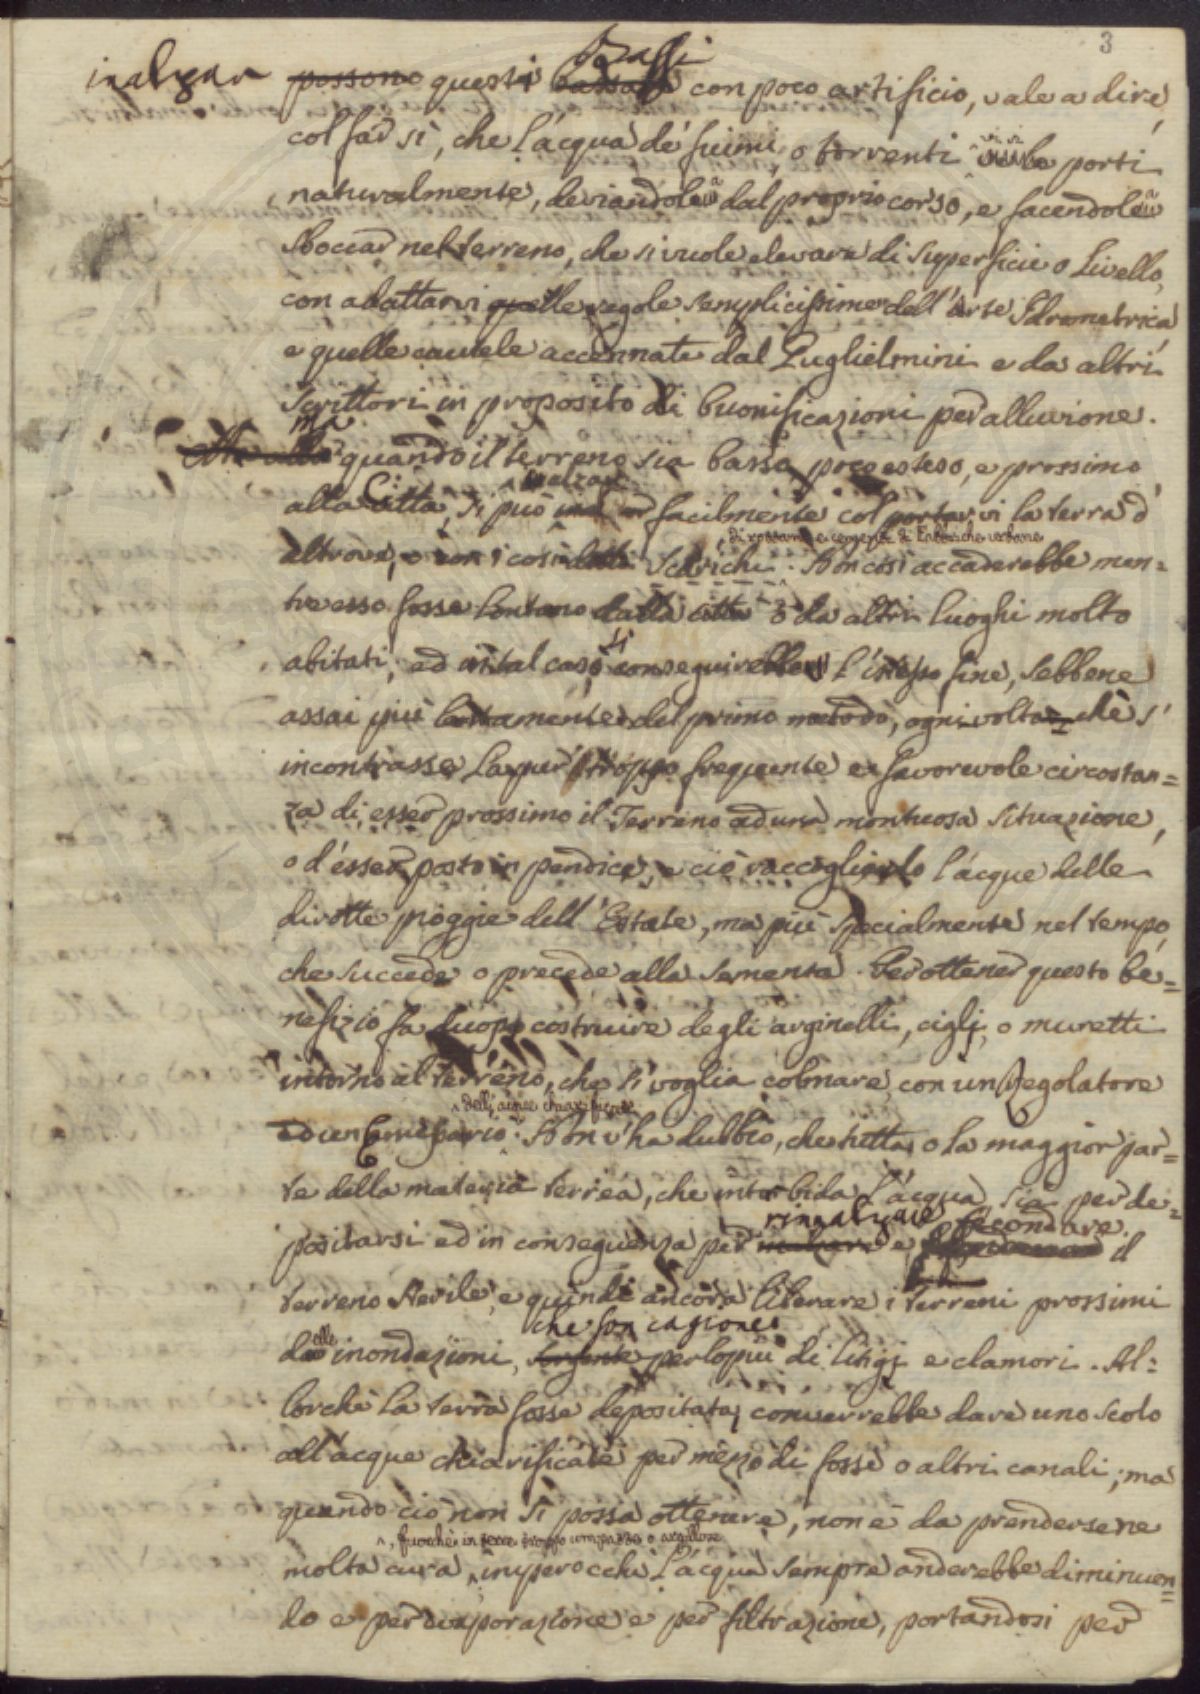 3
inalzar possono questi Bassi con poco artificio, vale a dire,
col far sì, che l'acqua de' fiumi, o torrenti vi si porti
naturalmente, deviandola dal proprio corso, e facendola
sboccar nel terreno, che si vuole elevare di superficie o livello,
con adattarvi quelle regole semplicissime dell'arte Idrometrica
e quelle cautele accennate dal Guglielmini e da altri
Scrittori in proposito di buonificazioni per alluvione.
ma quando il terreno sia basso, poco esteso, e prossimo
inalzar
alla Città, si può facilmente col portarvi la terra d'
di rottami e cementi di Fabbriche urbane
altrove, o con i così detti Scarichi. Non così accaderebbe men=
tre esso fosse lontano dalla città o da altri luoghi molto
abitati, ed in tal caso si conseguirebbe l'istesso fine, sebbene
assai più lentamente del primo metodo, ogni volta che s'
incontrasse la pur troppo frequente e favorevole circostan=
za di esser prossimo il Terreno ad una montuosa situazione,
o d'esser posto in pendice, e ciò raccogliendo l'acque delle
dirotte pioggie dell'Estate, ma più specialmente nel tempo,
che succede o precede alla sementa. Per ottener questo be=
nefizio fa duopo costruire degli arginelli, ciglj, o muretti
intorno al terreno, che si voglia colmare, con un Regolatore
dell'acque chiarificate
ed un Emissario. Non v'ha dubbio, che tutta, o la maggior par=
te della materia terrea, che intorbida l'acqua, sia per de=
positarsi ed in conseguenza per rinnalzare e fecondare il
terreno sterile, e quindi ancora liberare i terreni prossimi
che son cagione
dalle inondazioni, sorgente per lo più di litigj e clamori. Al=
lorchè la terra fosse depositata, converrebbe dare uno scolo
all'acque chiarificate per mezzo di fosse o altri canali; ma
quando ciò non si possa ottenere, non è da prendersene
fuorchè in terre troppo compatte o argillose
molta cura, imperocchè l'acqua sempre anderebbe diminuen=
do e per evaporazione e per filtrazione, portandosi per